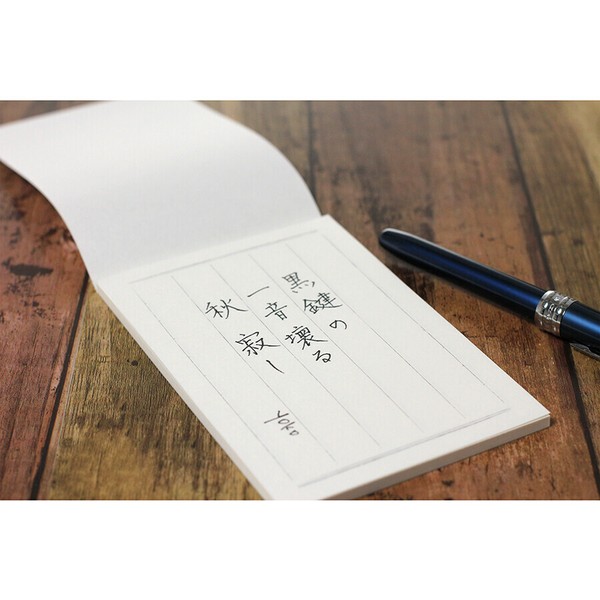 黒鍵の
一音壊る
秋寂し